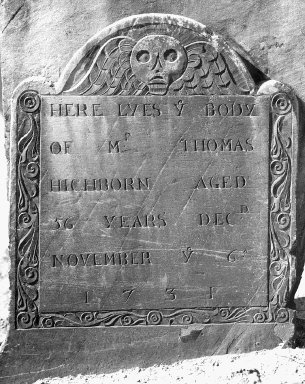 HERE LYES Yͤ BODY
OF Mͬ THOMAS
HICHBORN AGED
56 YEARS DECᴰ
NOVEMBER Yͤ 6ᵗʰ
1731